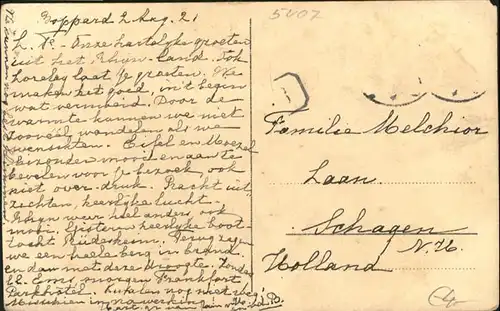 5407
Boppard 2 Aug. 21
L. Fe - Onze hartelyke groeten
uit het Rhyn-land. Ook
Loreley laat U groeten. We
maken het goed, in 't begin
wat vermoeid. Door de
warmte kunnen we niet
zooveel wandelen als we
wenschten. Eifel en Moezel
byzonder mooi en aan te
bevelen voor Uw bezoek, ook
niet over-druk. Pracht uit-
zichten, heerlyke lucht.
Rhyn weer heel anders, ook
mooi. Gisteren heerlyke boot-
tocht Rüdesheim. Terug zagen
we een heele berg in brand
en dan met deze droogte. Honden
Ems, morgen Frankfort
Parkhotel.
Misschien in
Familie Melchior
Laan.
Schagen
N. H.
Holland